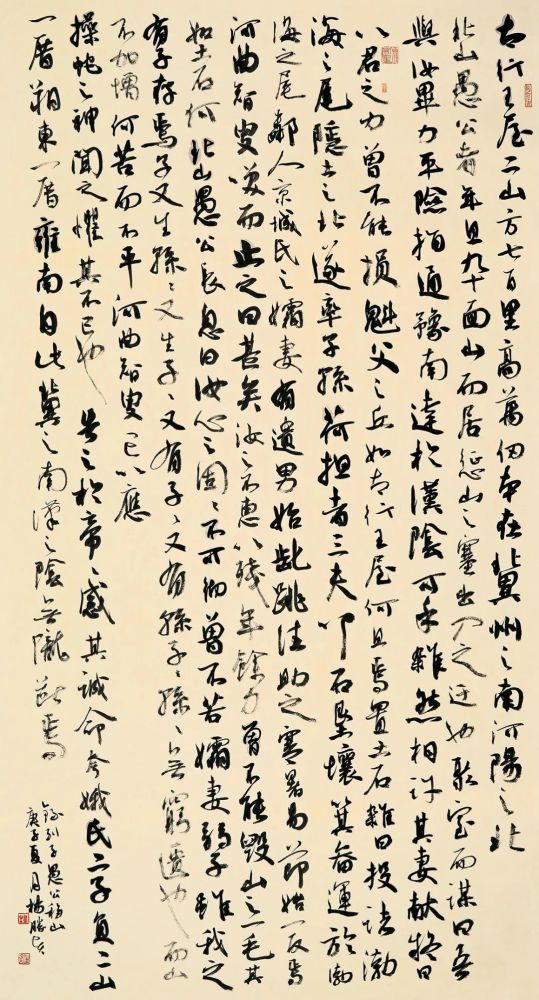 太行王屋二山方七百里高萬仞本在冀州之南河陽之北
北山愚公者年且九十面山而居懲山之塞出入之迂也聚室而謀曰吾
與汝畢力平險指通豫南達於漢陰可乎雜然相許其妻獻疑曰
以君之力曾不能損魁父之丘如太行王屋何且焉置土石雜曰投諸渤
海之尾隱土之北遂率子孫荷担者三夫叩石墾壤箕畚運於渤
海之尾鄰人京城氏之孀妻有遺男始齔跳往助之寒暑易節始一反焉
河曲智叟笑而止之曰甚矣汝之不惠以殘年餘力曾不能毀山之一毛其
如土石何北山愚公長息曰汝心之固〻不可徹曾不若孀妻弱子雖我之
有子存焉子又生孫〻又生子〻又有子〻又有孫子〻孫〻無窮匱也而山
不加增何苦而不平河曲智叟亡以應
操蛇之神聞之懼其不已也告之於帝〻感其誠命夸娥氏二子負二山
一厝朔東一厝雍南自此冀之南漢之陰無隴斷焉
錄列子愚公移山
庚子夏月楊勝